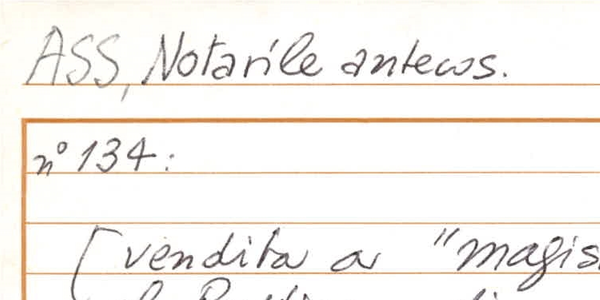 ASS, Notarile antecos.
n° 134:
[vendita a "magis